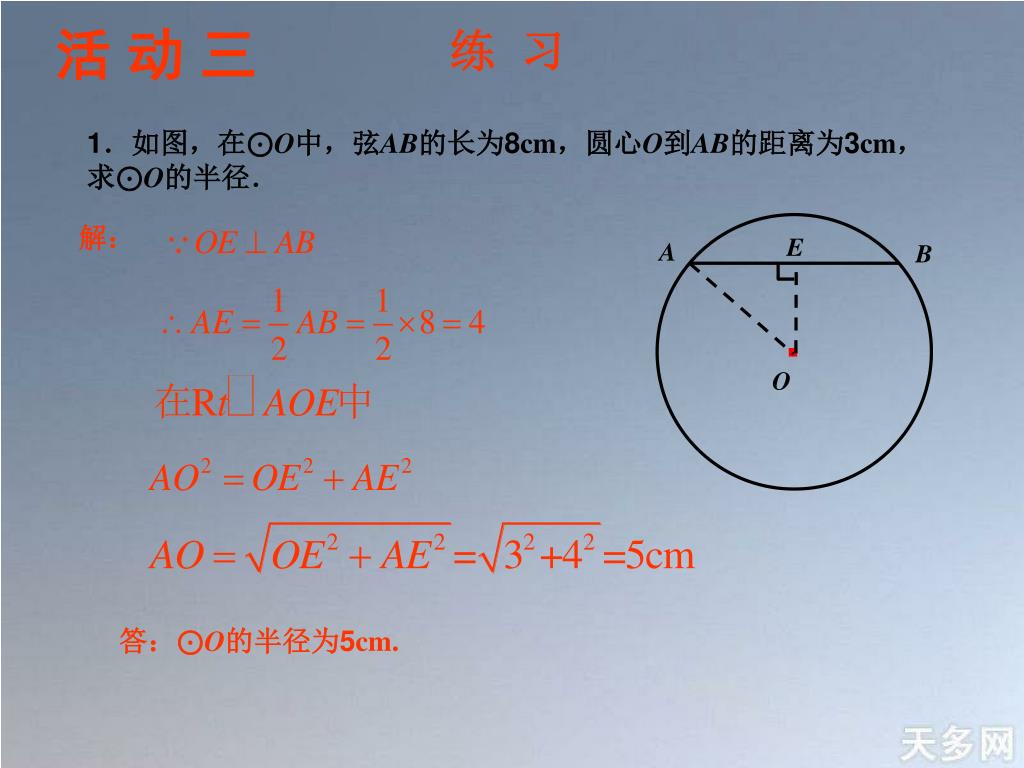 活 动 三
练 习
1．如图，在⊙O中，弦AB的长为8cm，圆心O到AB的距离为3cm，
求⊙O的半径．
解：
∵OE⊥AB
∴AE=1/2 AB=1/2×8=4
在Rt□AOE中
AO²=OE²+AE²
AO=√(OE²+AE²)=√(3²+4²)=5cm
答：⊙O的半径为5cm.
A
E
B
O
天多网